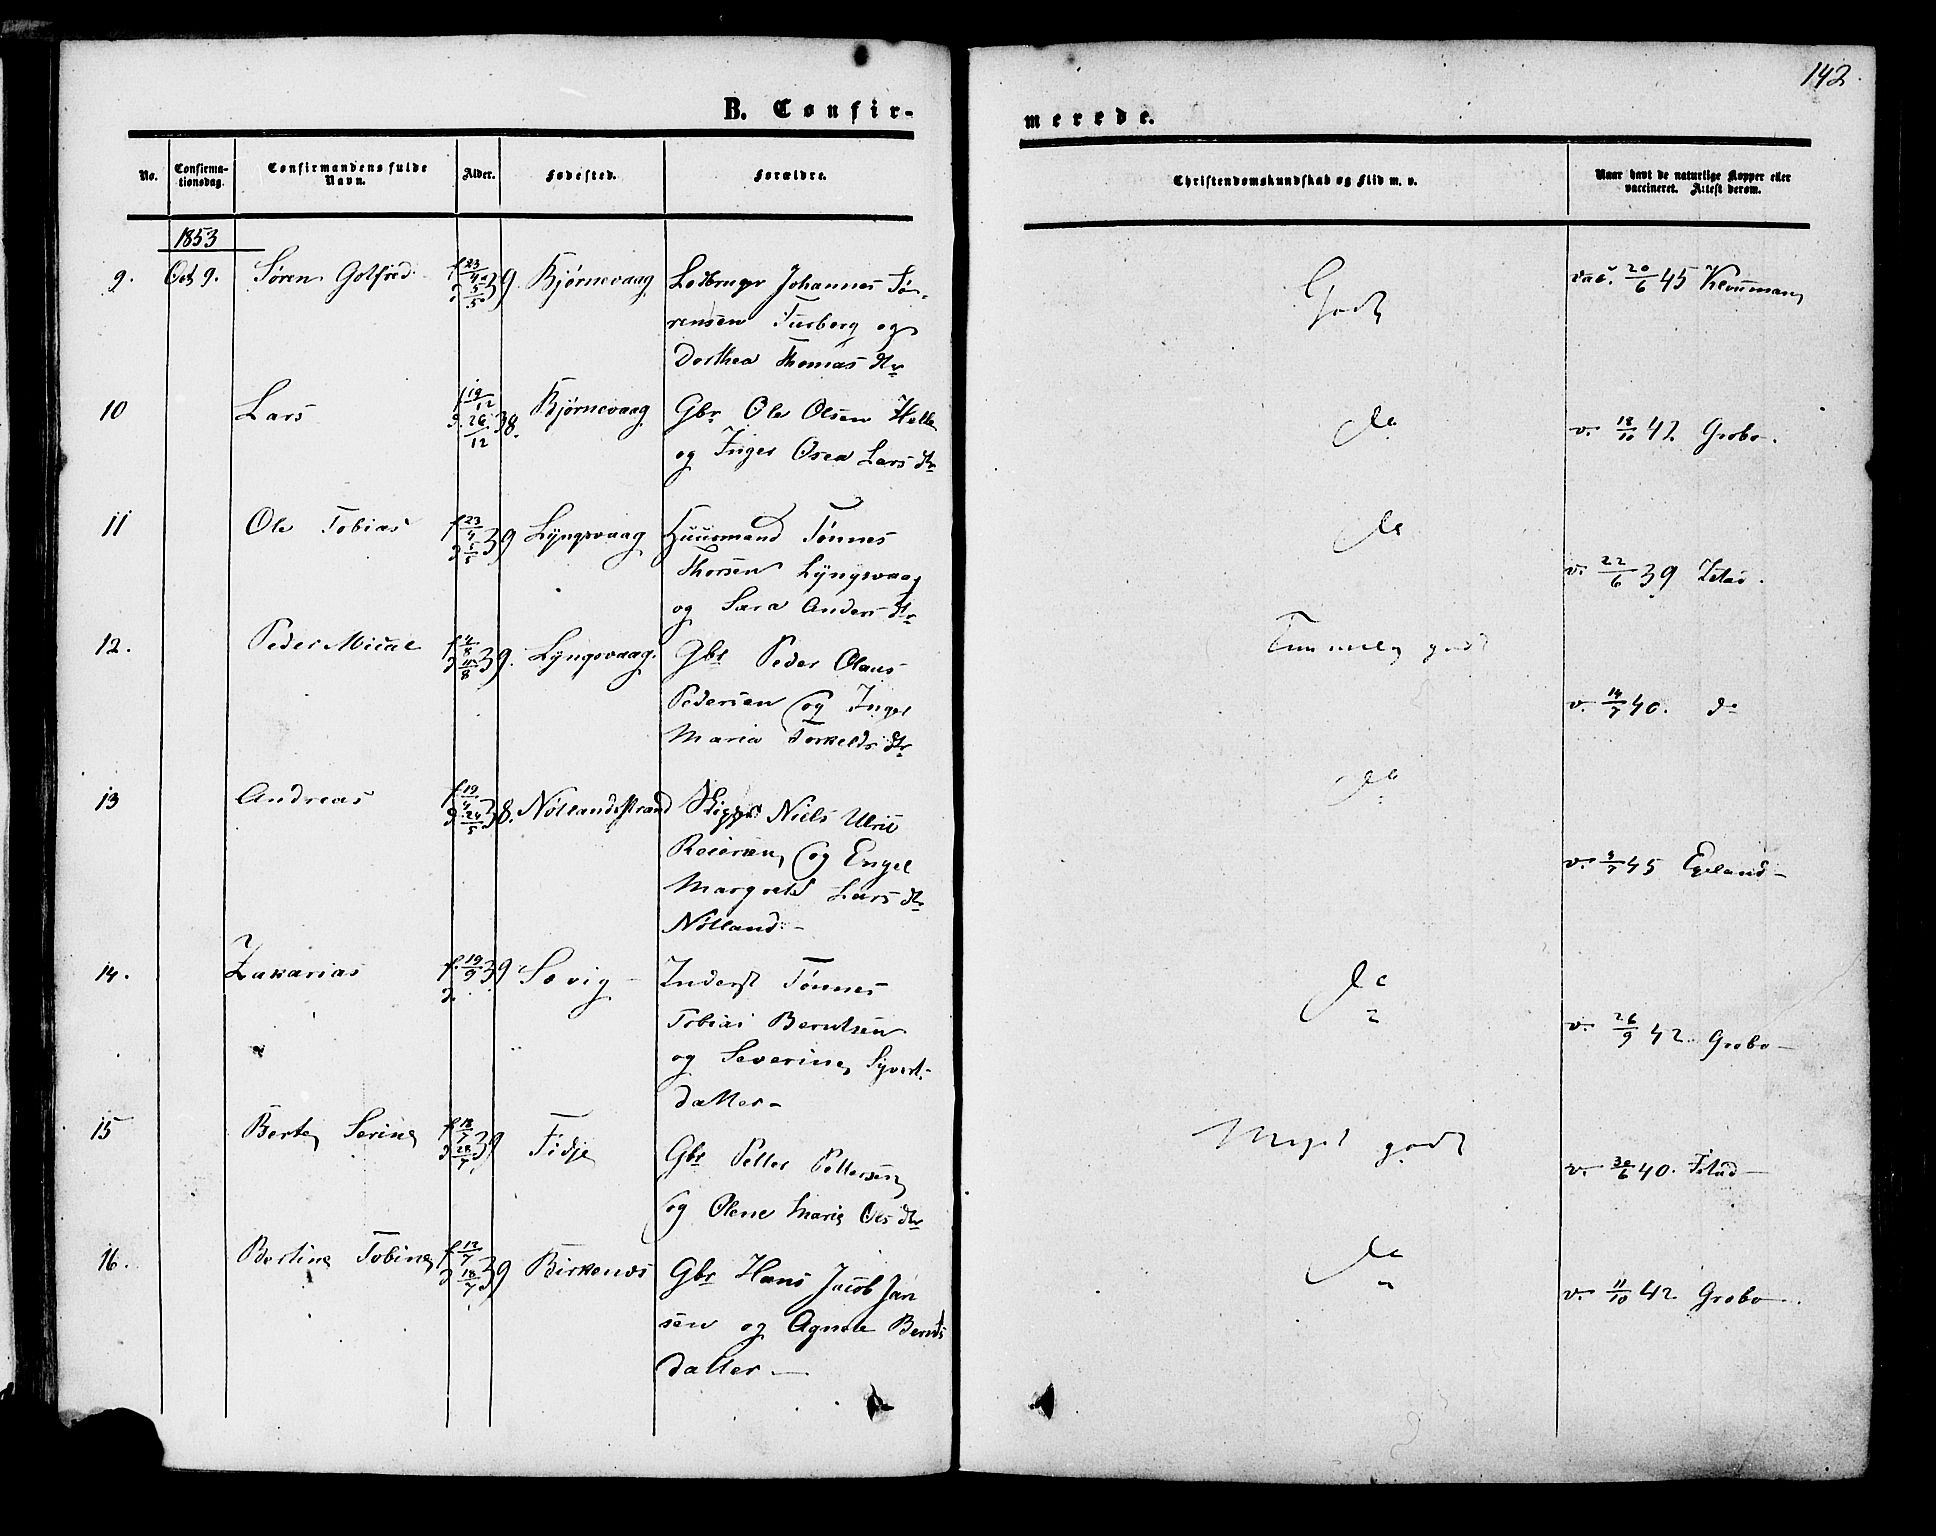 142
B. Confir-
merede.
No.
Confirma-
tionsdag.
Confirmandens fulde
Navn.
Alder.
Fødested.
Forældre.
Christendomskundskab og Flid m. v.
Naar havt de naturlige Kopper eller
vaccineret. Attest derom.
1853
9. Oct 9. Søren Gotfred f 23/4 d 5/5 39 Bjørnevaag Lodbruger Johannes Sø-
rensen Tusberg og
Dorthea Thomas dtr
Godt
vac. 20/6 45
10 Lars f 19/12 d. 26/12 38. Bjørnevaag Gbr Ole Olsen Helle
og Inger Osea Lars dtr
do
v. 18/10 42 Grobo.
11 Ole Tobias f 23/4 d 5/5 39 Lyngsvaag Huusmand Tønnes
Thorsen Lyngsvaag
og Sara Anders dtr
do
v. 22/6 39
12. Peder Mical f 4/8 d 11/8 39. Lyngsvaag. Gbr Peder Olaus
Pedersen og Ingel
Maria Torkelds dtr
Temmelig godt
v. 14/7 40. do
13 Andreas f 19/4 d 24/5 38. Nøtlandsstrand Skipper Niels Ulric
Reiersen og Engel
Margrete Lars dtr
Nøtland.-
do
v. 3/7 45 Egeland-
14. Zakarias f. 19/9 39 d. Sovig- Inderst Tønnes
Tobias Berntsen
og Severine Syvert-
datter-
do
v. 26/9 42 Grobo-
15 Berte Serine f 18/7 d 28/7 39 Fidje Gbr Petter Pettersen
og Olene Marie Ols dtr
Meget godt
v. 30/6 40.
16. Bertine Tobine f. 12/7 d 18/7 39 Birkenes Gbr Hans Jacob Jan
sen og Agnete Bernts
datter-
do
v. 11/10 42 Grobo-